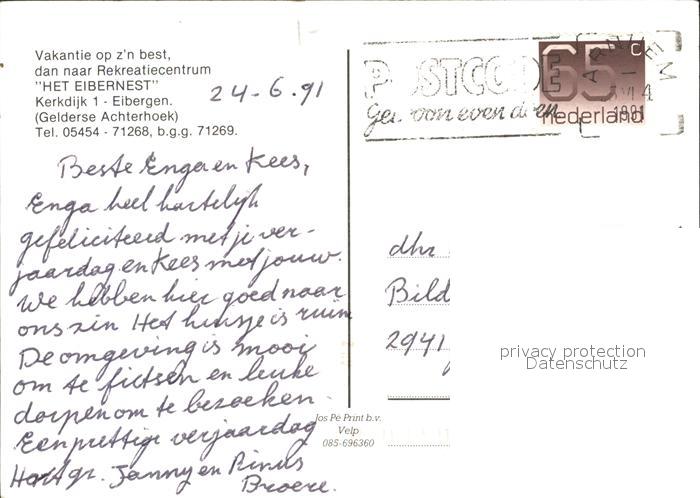 Vakantie op z'n best,
dan naar Rekreatiecentrum
"HET EIBERNEST"
Kerkdijk 1 - Eibergen.
(Gelderse Achterhoek)
Tel. 05454 - 71268, b.g.g. 71269.
24-6.91
Beste Enga en Kees,
Enga heel hartelijk
gefeliciteerd met je ver-
jaardag en Kees met jouw.
We hebben hier goed naar
ons zin Het huisje is ruim
De omgeving is mooi
om te fietsen en leuke
dorpen om te bezoeken.
Een prettige verjaardag
Hart gr. Janny en Rinus
Broere.
POSTCODE
Gewoon even doen
65 c
nederland
1991
dhr
Bild
2941
Jos Pé Print b.v.
Velp
085-696360
privacy protection
Datenschutz